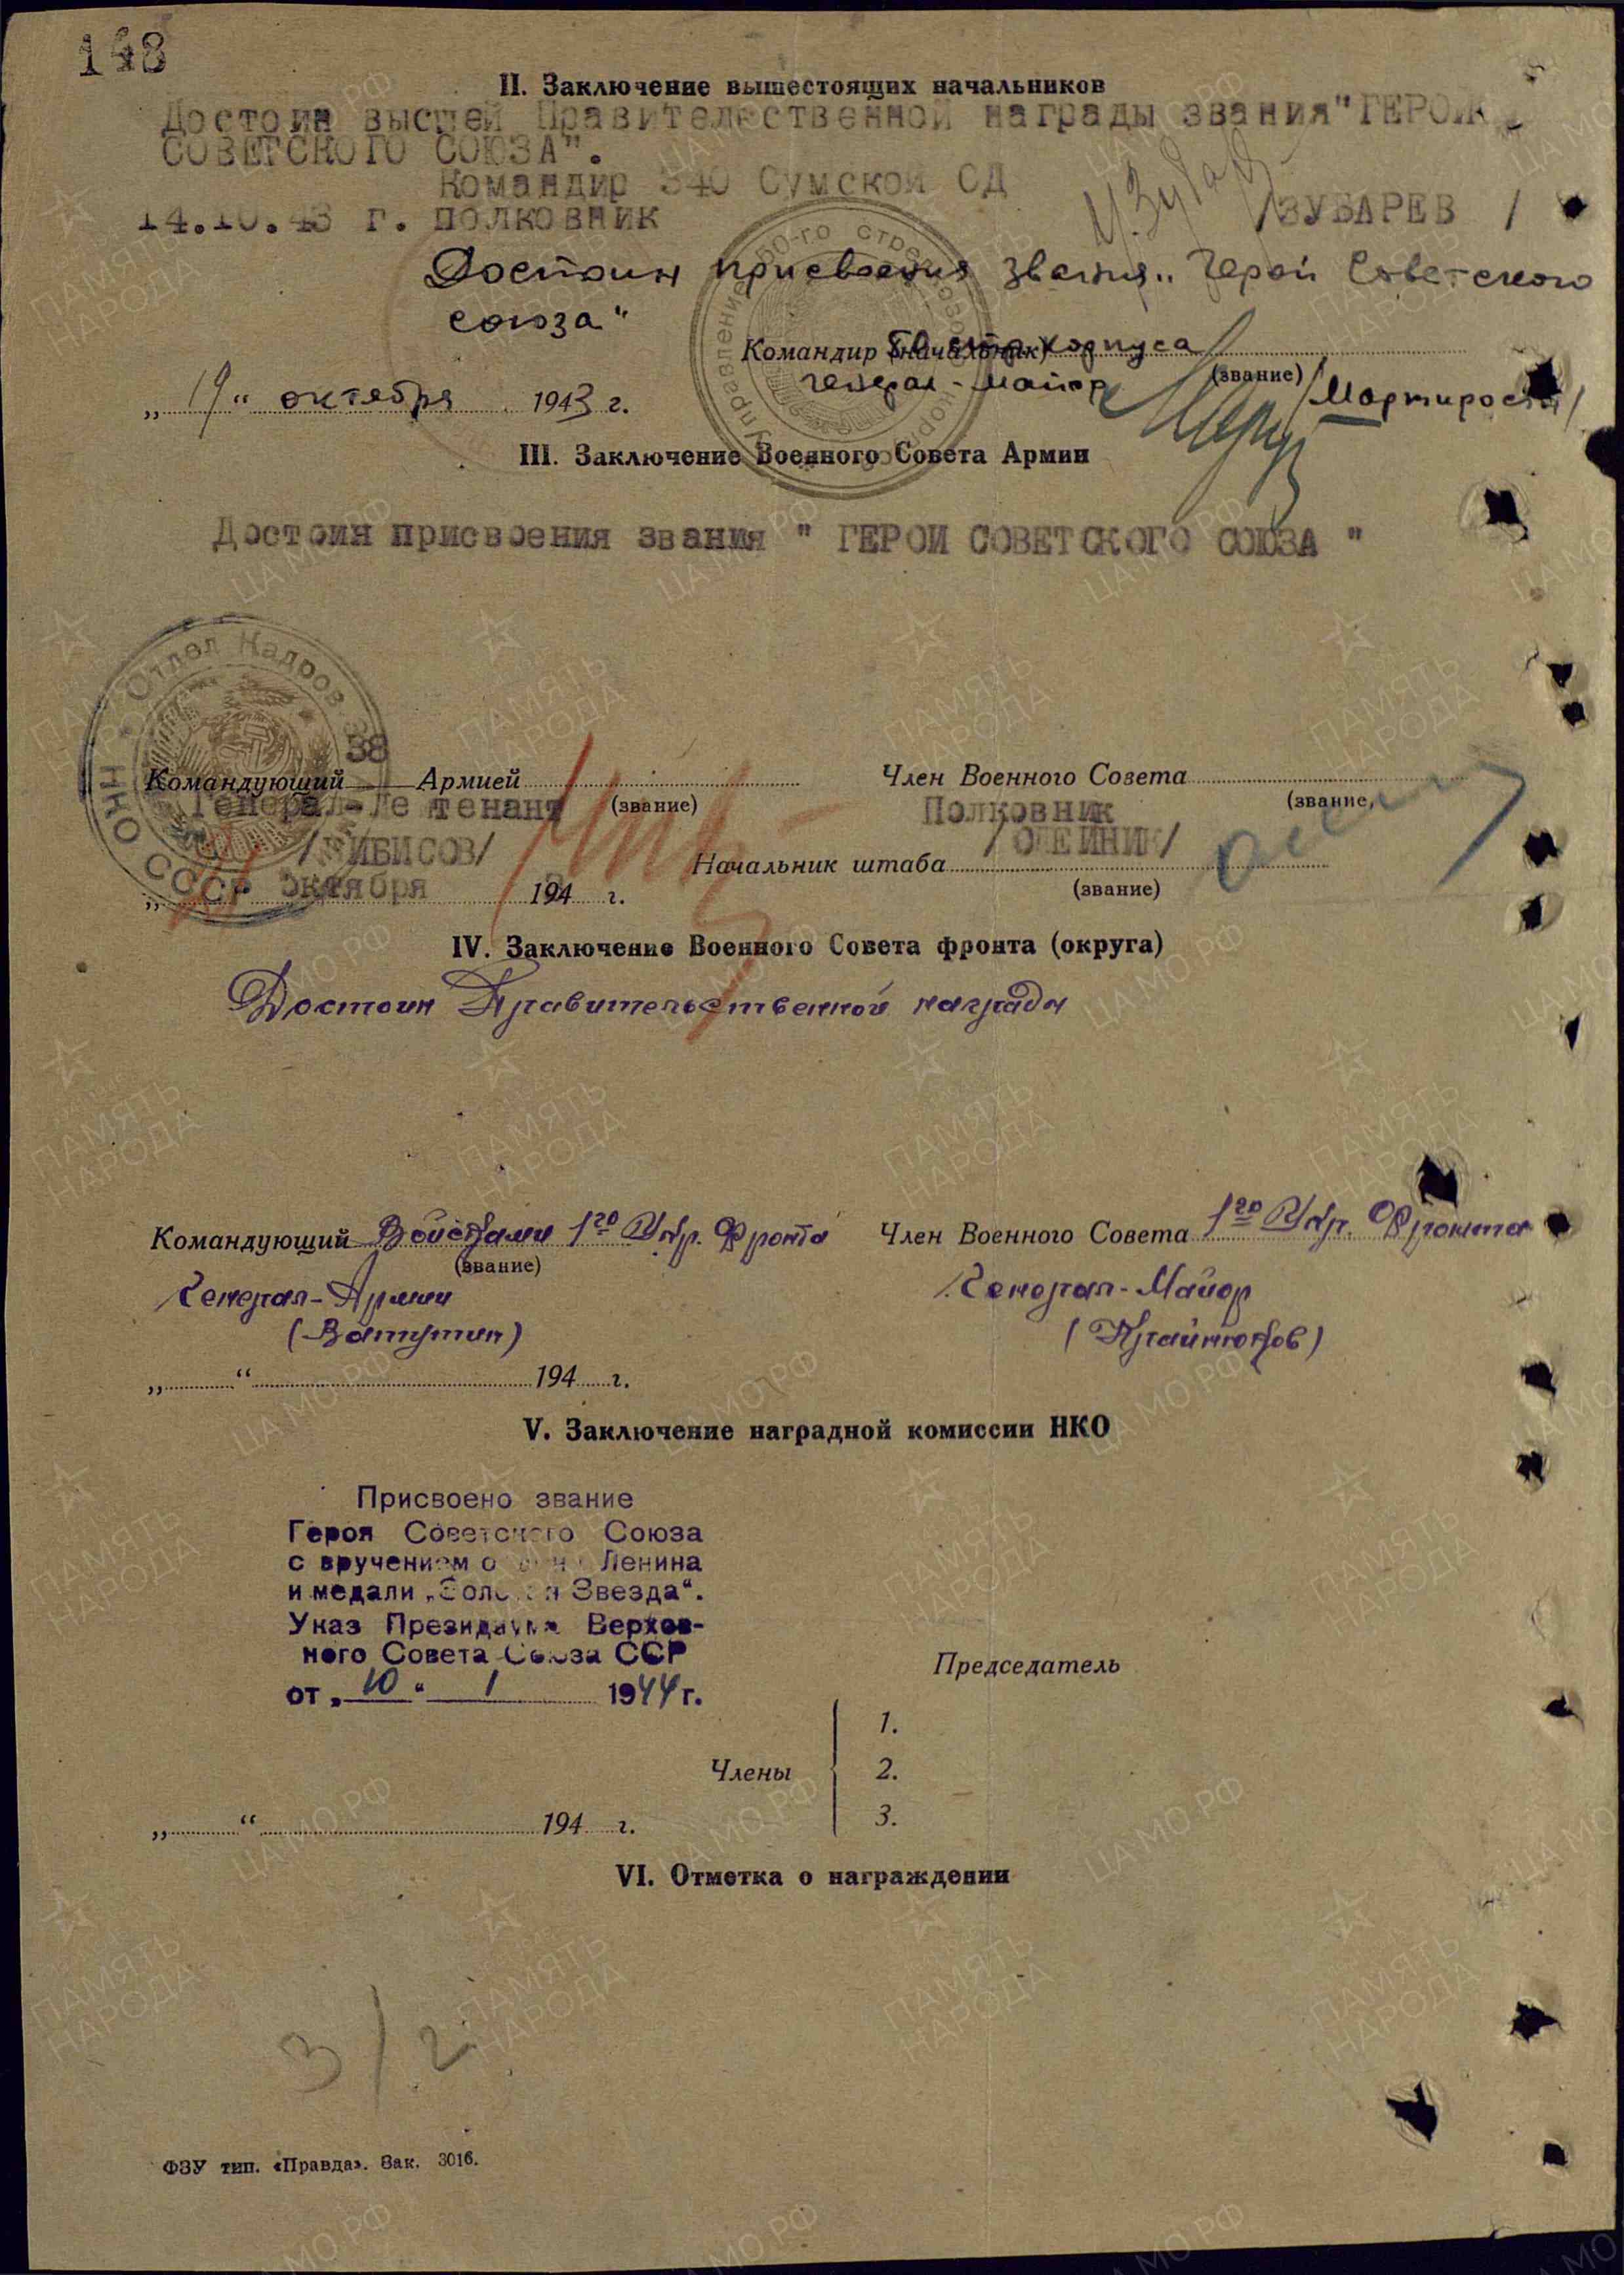 148
II. Заключение вышестоящих начальников
Достоин высшей Правительственной награды звания "ГЕРОЯ
СОВЕТСКОГО СОЮЗА".
Командир 340 Сумской СД
14.10.43 г. полковник /ЗУБАРЕВ /
Достоин присвоения звания „Герой Советского
союза"
Командир (начальник) 50 стр. корпуса
(звание)
генерал-майор /Мартиросян/
„19" октября 1943 г.
III. Заключение Военного Совета Армии
Достоин присвоения звания " ГЕРОЙ СОВЕТСКОГО СОЮЗА "
Отдел Кадров 38
НКО СССР
Командующий 38 Армией
(звание)
Генерал-Лейтенант
/ЧИБИСОВ/
октября 194 г.
Член Военного Совета
(звание)
Полковник
/ОЛЕЙНИК/
Начальник штаба
(звание)
IV. Заключение Военного Совета фронта (округа)
Достоин Правительственной награды
Командующий Войсками 1го Укр. Фронта
(звание)
Генерал-Армии
(Ватутин)
„ “ 194 г.
Член Военного Совета 1го Укр. Фронта
Генерал-Майор
(Крайнюков)
V. Заключение наградной комиссии НКО
Присвоено звание
Героя Советского Союза
с вручением ордена Ленина
и медали „Золотая Звезда“.
Указ Президиума Верхов-
ного Совета Союза ССР
от „10“ 1 1944 г.
Председатель
Члены
1.
2.
3.
„ “ 194 г.
VI. Отметка о награждении
3/2
ФЗУ тип. «Правда». Зак. 3016.
ПАМЯТЬ НАРОДА
ЦА МО РФ